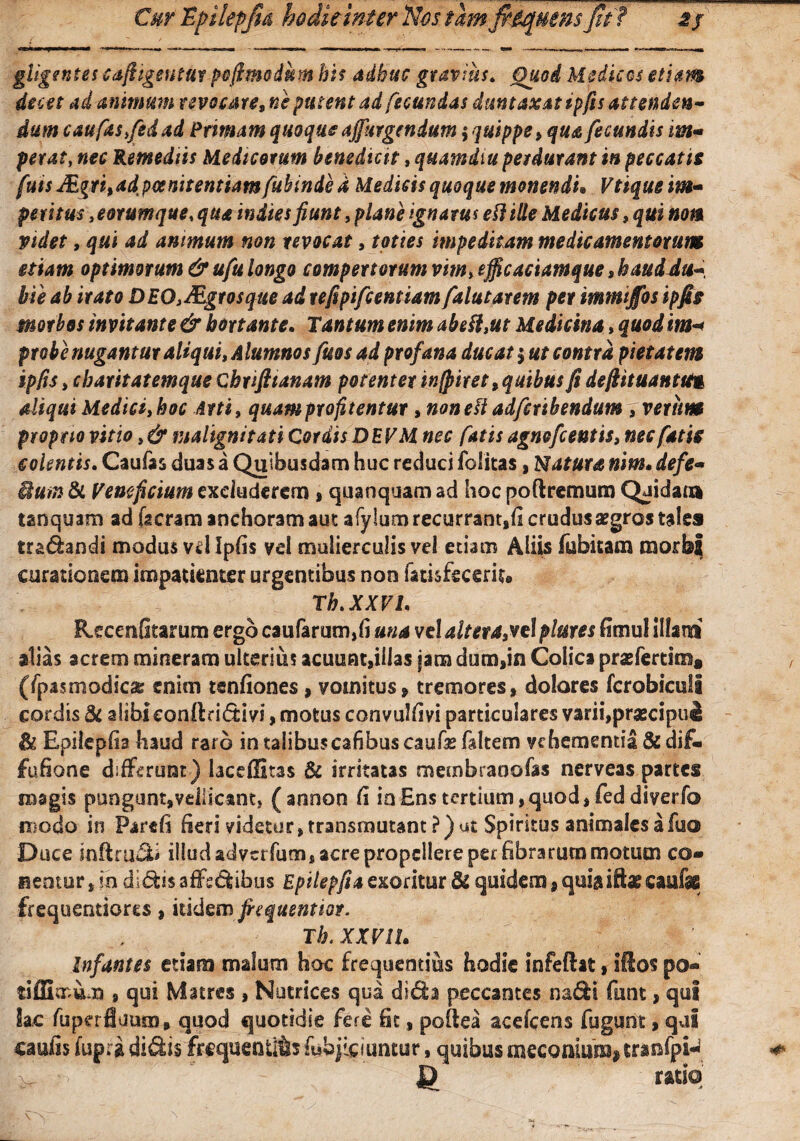 Cur Epilepsia hodie inter Nos tàm frequens sit? 25
gligentes castigentur postmodùm his adhuc gravius. Quod Medicos etiam
decet ad animum revocare, ne putent ad secundas duntaxat ipsis attenden-
dum causas, sed ad Primam quoque assurgendum; quippe, qua secundis im-
perat, nec Remediis Medicorum benedicit, quamdiu perdurant in peccatis
suis Ægri, ad pœnitentiam subinde à Medicis quoque monendi. Vtique im-
peritus, eorumque, qua indies fiunt, plane ignarus est ille Medicus, qui non
videt, qui ad animum non revocat, toties impeditam medicamentorum
etiam optimorum & usu longo compertorum vim, efficaciamque, haud du-
bie ab irato DEO, Ægrosque ad resipiscentiam salutarem per immissos ipsis
morbos invitante & hortante. Tantum enim abest, ut Medicina, quod im-
probe nugantur aliqui, Alumnos suos ad profana ducat; ut contrà pietatem
ipsis, charitatemque Christianam potenter inspiret, quibus si destituantur
aliqui Medici, hoc Arti, quam profitentur, non est adscribendum, verùm
proprio vitio, & malignitati Cordis DEVM nec satis agnoscentis, nec satis
colentis. Causas duas à Quibusdam huc reduci solitas, Natura nim. defe-
ctum & Veneficium excluderem, quanquam ad hoc postremum Quidam
tanquam ad sacram anchoram aut asylum recurrant, si crudus ægros tales
tractandi modus vel Ipsis vel mulierculis vel etiam Aliis subitam morbi
curationem impatienter urgentibus non satisfecerit.
Th. XXVI.
Recensitarum ergò causarum, si una vel altera, vel plures simul illam
aliàs acrem mineram ulterius acuunt, illas jam dum, in Colica præsertim,
(spasmodicæ enim tensiones, vomitus, tremores, dolores scrobiculi
cordis & alibi constrictivi, motus convulsivi particulares varii, præcipuè
& Epilepsia haud rarò in talibus casibus causæ saltem vehementiâ & dif-
fusione differunt) lacessitas & irritatas membranosas nerveas partes
magis pungunt, vellicant, (annon si in Ens tertium, quod, sed diverso
modo in Paresi fieri videtur, transmutant?) ut Spiritus animales à suo
Duce instructi illud adversum, acre propellere per fibrarum motum co-
nentur, in dictis affectibus Epilepsia exoritur & quidem, quia istæ causæ
frequentiores, itidem frequentior.
Th. XXVII.
Infantes etiam malum hoc frequentiùs hodie infestat, istos po-
tissimùm, qui Matres, Nutrices quâ dicta peccantes nacti sunt, qui
lac superfluum, quod quotidie fere fit, posteà acescens sugunt, qui
causis suprà dictis frequentiùs subjiciuntur, quibus meconium, transpi-
D ratio